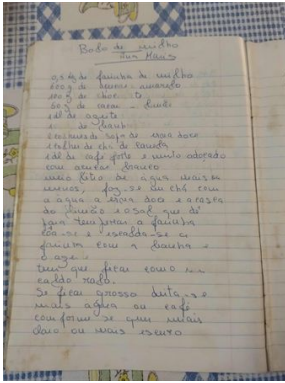 Bolo de milho
0,5 kg de farinha de milho
600 g de açucar amarelo
200 g de choc
60 g de cacau
1 dl de azeite
de banha
2 colheres de sopa de erva doce
1 colher de chá de canela
1 dl de café forte e muito adoçado
com açucar branco
meio litro de água mais ou
menos, faz-se um chá com
a água a erva doce e a casca
do limão e o sal que dê
para temperar a farinha
côa-se e escalda-se a
farinha com a banha e
o azeite
tem que ficar como um
caldo ralo.
Se ficar grosso deita-se
mais água ou café
conforme se quer mais
claro ou mais escuro